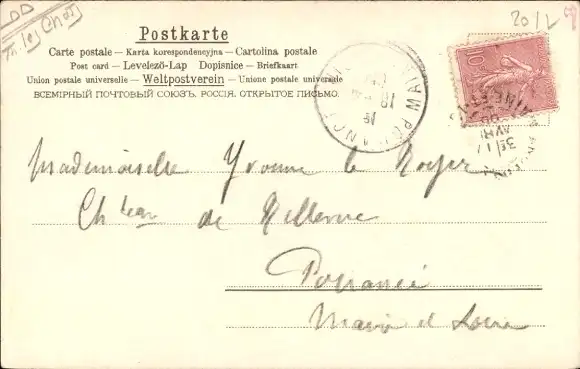 20/2
Postkarte
Carte postale — Karta korespondencyjna — Cartolina postale
Post card — Levelező-Lap Dopisnice — Briefkaart
Union postale universelle — Weltpostverein — Unione postale universale
ВСЕМІРНЫЙ ПОЧТОВЫЙ СОЮЗЪ. РОССІЯ. ОТКРЫТОЕ ПИСЬМО.
10
Mademoiselle Yvonne le Royer
Chteau de
Pouancé
Maine et Loire